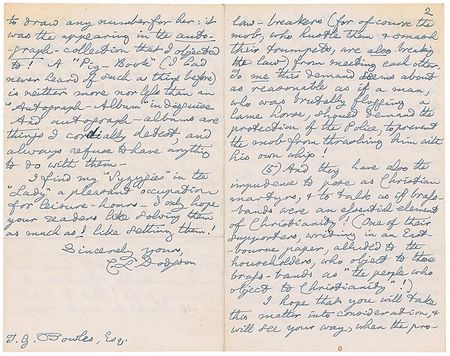 to draw any number for her: it
was the appearing in the auto-
graph-collection that I objected
to! A "Pig-Book" (I had
never heard of such a thing before)
is neither more nor less than an
"Autograph-Album" in disguise
And autograph-albums are
things I cordially detest, and
always refuse to have anything
to do with them—
I find my "Syzygies" in the
"Lady" a pleasant occupation
for leisure-hours— I only hope
your readers like solving them
as much as I like setting them!
Sincerely yours,
C L Dodgson
T. G. Bowles, Esq.
2
law-breakers (for of course the
mob, who hustle them & smash
their trumpets, are also breaking
the law) from meeting each other.
To me this demand seems about
as reasonable as if a man,
who was brutally flogging a
lame horse, should demand the
protection of the Police, to prevent
the mob from thrashing him with
his own whip.
(5) And they have also the
impudence to pose as Christian
martyrs, & to talk as if brass-
bands were an essential element
of Christianity! (One of their
supporters, writing in an East-
bourne paper, alluded to the
householders, who object to these
brass-bands as "the people who
object to Christianity"!)
I hope that you will take
this matter into consideration, &
will see your way, when the pro-